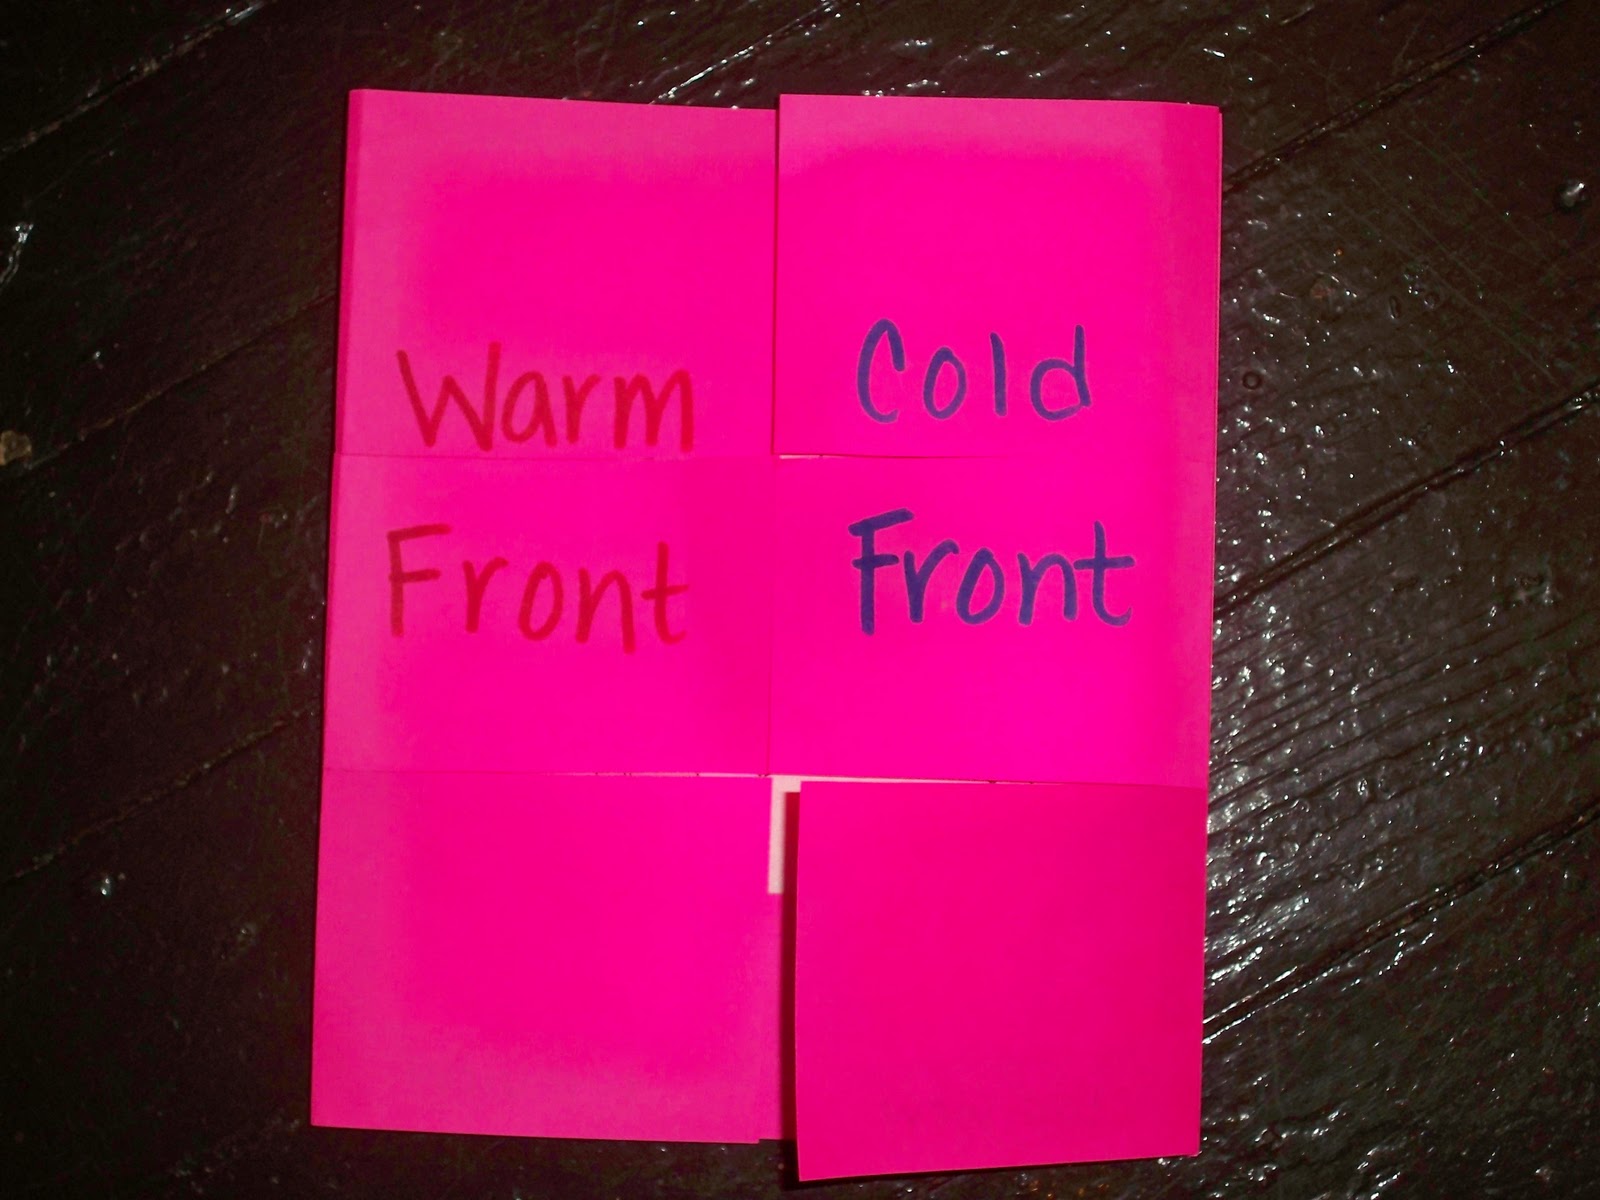 Warm
Front
Cold
Front